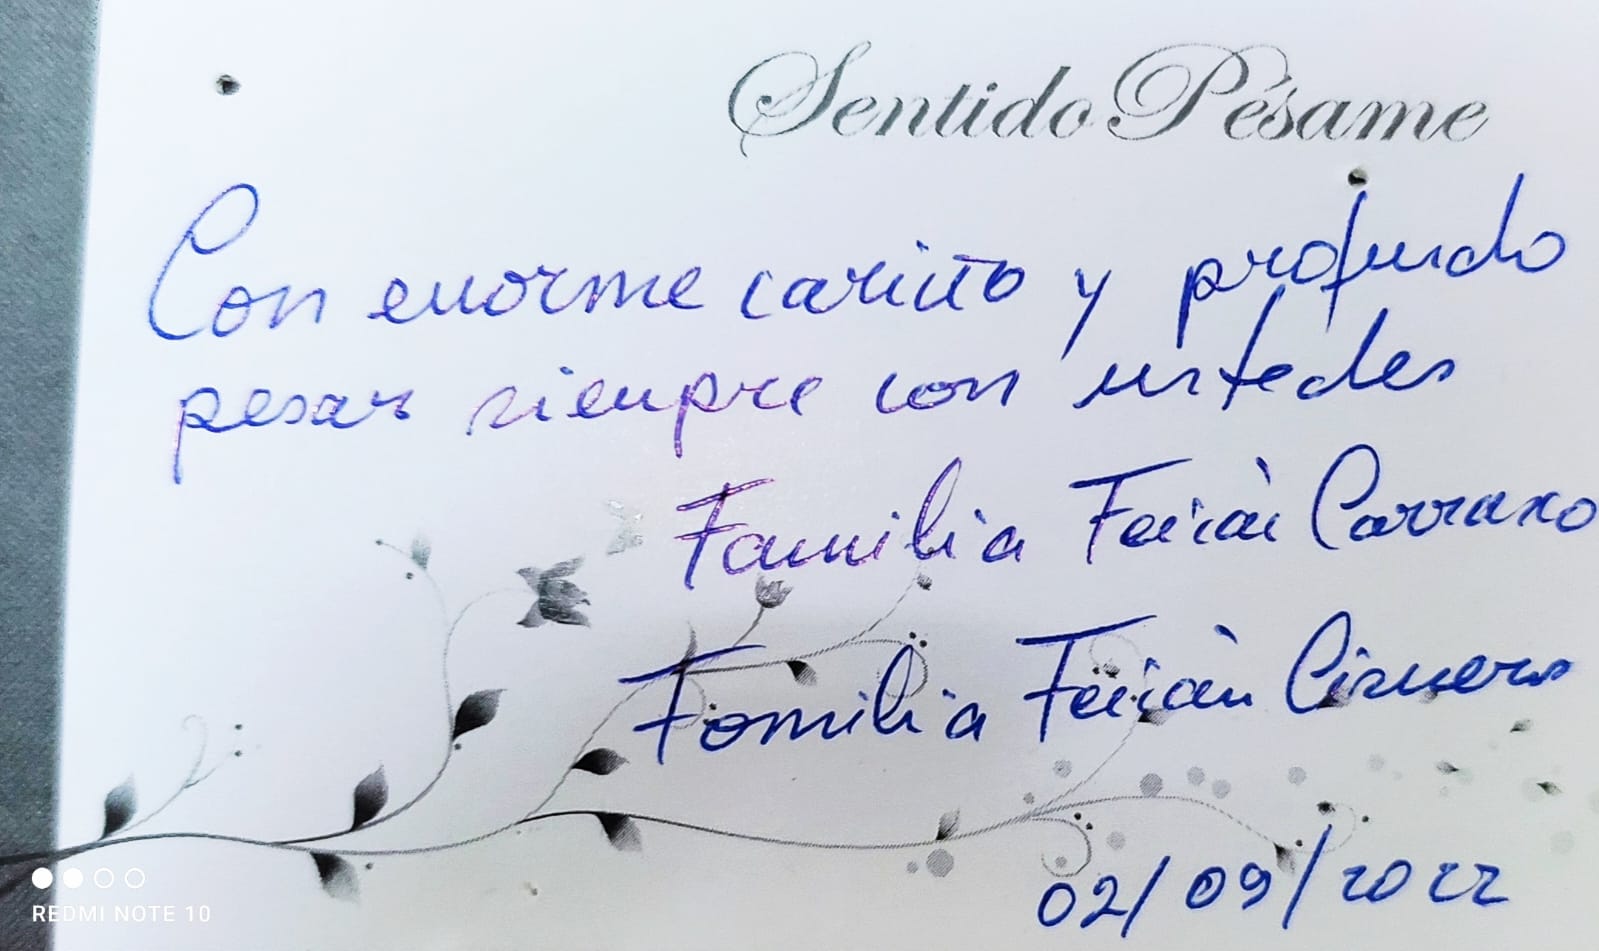 Sentido Pésame
Con enorme cariño y profundo
pesar siempre con ustedes
Familia Carrasco
Familia Cisneros
02/09/2022
REDMI NOTE 10